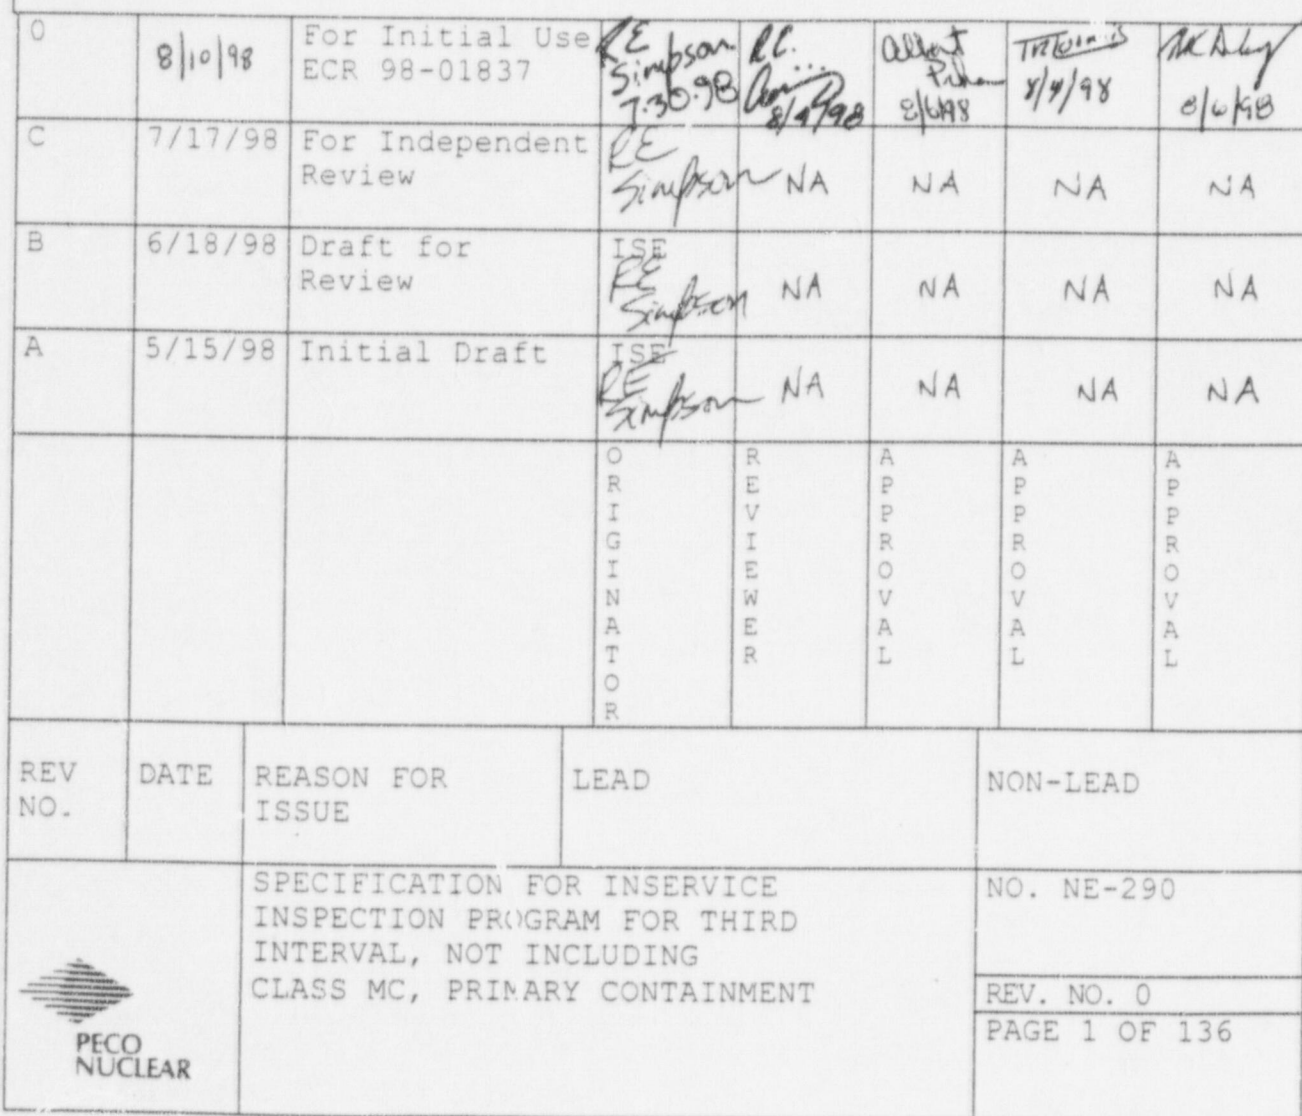 0
8/10/98
For Initial Use
ECR 98-01837
RE
Simpson
7.30.98
R.C.
8/4/98
Albert
8/6/98
8/4/98
8/6/98
C
7/17/98
For Independent
Review
RE
Simpson
NA
NA
NA
NA
B
6/18/98
Draft for
Review
ISE
RE
Simpson
NA
NA
NA
NA
A
5/15/98
Initial Draft
ISE
RE
Simpson
NA
NA
NA
NA
ORIGINATOR
REVIEWER
APPROVAL
APPROVAL
APPROVAL
REV
NO.
DATE
REASON FOR
ISSUE
LEAD
NON-LEAD
PECO
NUCLEAR
SPECIFICATION FOR INSERVICE
INSPECTION PROGRAM FOR THIRD
INTERVAL, NOT INCLUDING
CLASS MC, PRIMARY CONTAINMENT
NO. NE-290
REV. NO. 0
PAGE 1 OF 136